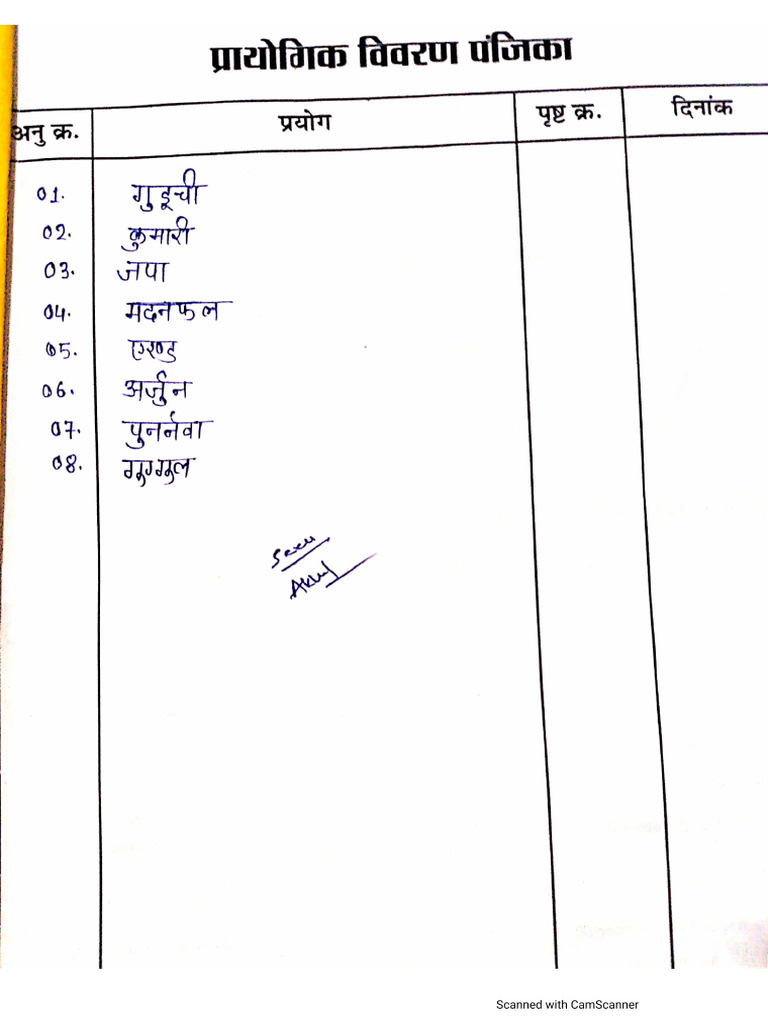 प्रायोगिक विवरण पंजिका
अनु क्र. प्रयोग पृष्ट क्र. दिनांक
01. गुडूची
02. कुमारी
03. जपा
04. मदनफल
05. एरण्ड
06. अर्जुन
07. पुनर्नवा
08. गुग्गुल
Seen
Scanned with CamScanner